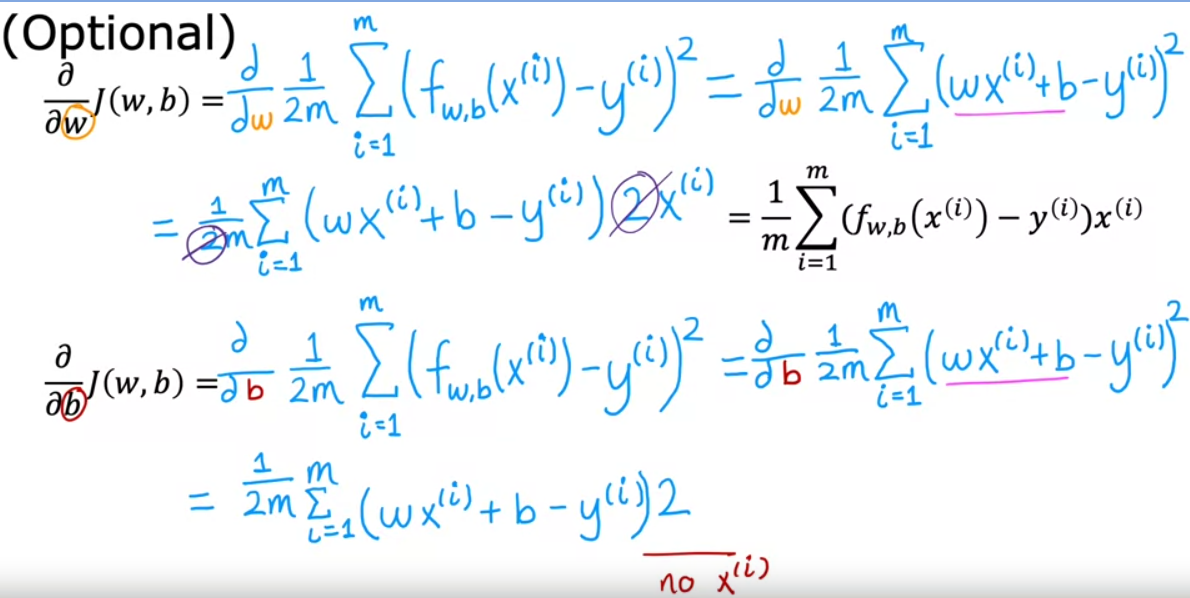 (Optional)
∂/∂w J(w, b) = d/dw 1/2m Σ_{i=1}^{m} (f_{w,b}(x^{(i)}) - y^{(i)})^2 = d/dw 1/2m Σ_{i=1}^{m} (wx^{(i)} + b - y^{(i)})^2
= 1/2m Σ_{i=1}^{m} (wx^{(i)} + b - y^{(i)}) 2x^{(i)} = 1/m Σ_{i=1}^{m} (f_{w,b}(x^{(i)}) − y^{(i)})x^{(i)}
∂/∂b J(w, b) = ∂/∂b 1/2m Σ_{i=1}^{m} (f_{w,b}(x^{(i)}) - y^{(i)})^2 = ∂/∂b 1/2m Σ_{i=1}^{m} (wx^{(i)} + b - y^{(i)})^2
= 1/2m Σ_{i=1}^{m} (wx^{(i)} + b - y^{(i)}) 2
no x^{(i)}